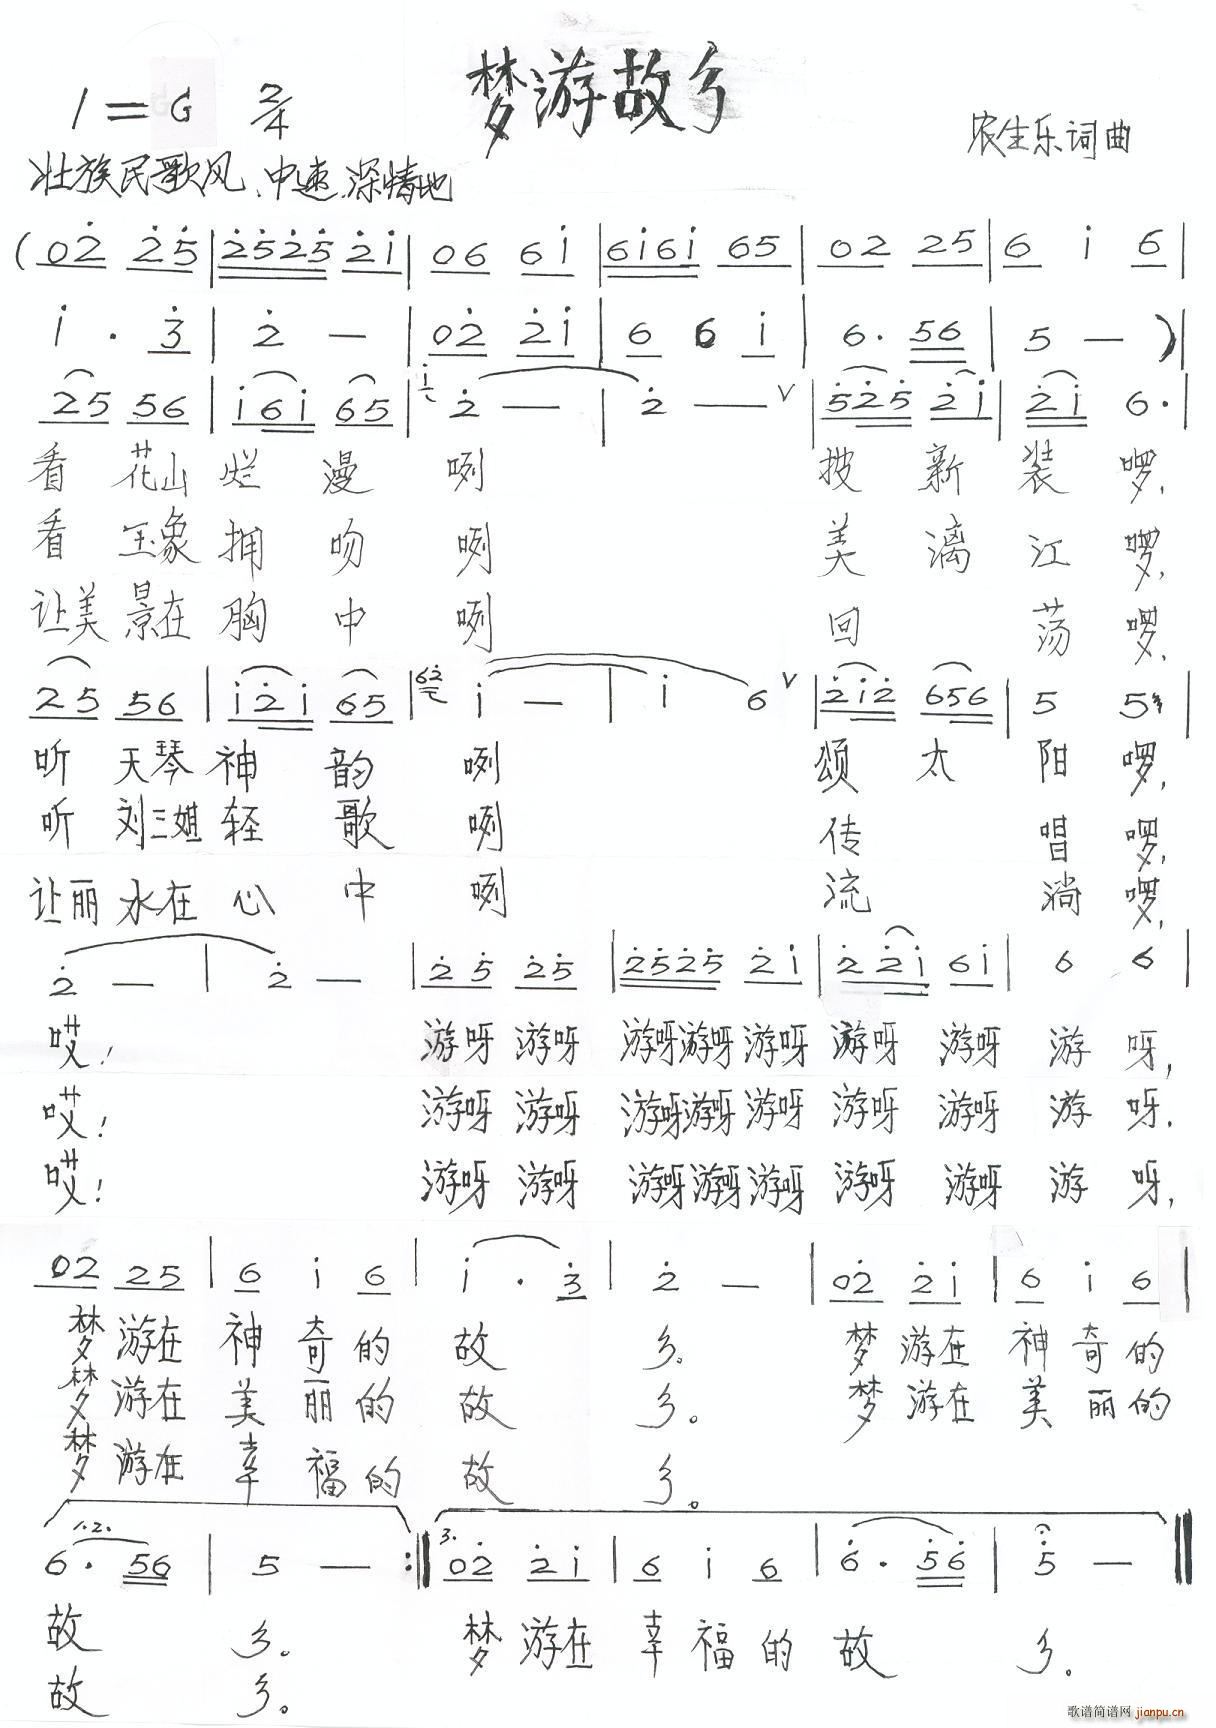 梦游故乡
1=G 2/4
农生乐词曲
壮族民歌风、中速、深情地
(02̇ 2̇5̇ | 2̇5̇2̇5̇ 2̇i | 06 6i | 6i6i 65 | 02 25 | 6 i 6 |
i · 3̇ | 2̇ — | 02̇ 2̇i | 6 6 i | 6· 56 | 5 — )|
25 56 | i6i 65 | i 2̇ — | 2̇ — ∨ | 5̇2̇5̇ 2̇i | 2̇i 6· |
看 花山 烂 漫 咧 披 新 装 啰,
看 玉象 拥 吻 咧 美 漓 江 啰,
让美 景在 胸 中 咧 回 荡 啰,
25 56 | i2̇i 65 | 62̇ i — | i 6 ∨ | 2̇i2̇ 656 | 5 5 |
听 天琴 神 韵 咧 颂 太 阳 啰,
听 刘三姐 轻 歌 咧 传 唱 啰,
让丽 水在 心 中 咧 流 淌 啰,
2̇ — | 2̇ — | 2̇5̇ 2̇5̇ | 2̇5̇2̇5̇ 2̇i | 2̇2̇i 6i | 6 6 |
哎! 游呀 游呀 游呀游呀 游呀 游呀 游呀 游 呀,
哎! 游呀 游呀 游呀游呀 游呀 游呀 游呀 游 呀,
哎! 游呀 游呀 游呀游呀 游呀 游呀 游呀 游 呀,
02 25 | 6 i 6 | i · 3̇ | 2̇ — | 02̇ 2̇i | 6 i 6 |
梦 游在 神 奇 的 故 乡。 梦 游在 神 奇 的
梦 游在 美 丽 的 故 乡。 梦 游在 美 丽 的
梦 游在 幸 福 的 故 乡。
1.2. 3.
6· 56 | 5 — :‖ 02̇ 2̇i | 6 i 6 | 6̇· 5̇6̇ | 5̇ — ‖
故 乡。 梦 游在 幸 福 的 故 乡。
故 乡。
歌谱简谱网 jianpu.cn